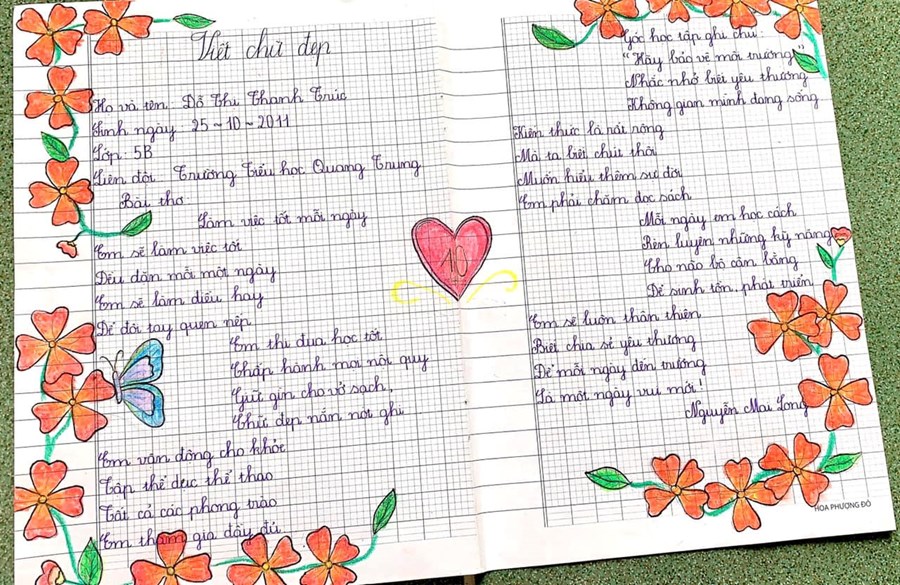 Viết chữ đẹp
Họ và tên: Đỗ Thị Thanh Trúc
Sinh ngày 25-10-2011
Lớp: 5B
Liên đội: Trường Tiểu học Quang Trung
Bài thơ:
Làm việc tốt mỗi ngày
Em sẽ làm việc tốt
Đều đặn mỗi một ngày
Em sẽ làm điều hay
Để đôi tay quen nếp
Em thi đua học tốt
Chấp hành mọi nội quy
Giữ gìn cho vở sạch,
Chữ đẹp nắn nót ghi
Em vận động cho khỏe
Tập thể dục thể thao
Tất cả các phong trào
Em tham gia đầy đủ
10
Góc học tập ghi chú:
"Hãy bảo vệ môi trường"
Nhắc nhở biết yêu thương
Không gian mình đang sống
Kiến thức là rất rộng
Mà ta biết chút thôi
Muốn hiểu thêm sự đời
Em phải chăm đọc sách
Mỗi ngày em học cách
Rèn luyện những kỹ năng
Cho não bộ cân bằng
Để sinh tồn, phát triển
Em sẽ luôn thân thiện
Biết chia sẻ yêu thương
Để mỗi ngày đến trường
Là một ngày vui mới!
Nguyễn Mai Long
HOA PHƯỢNG ĐỎ